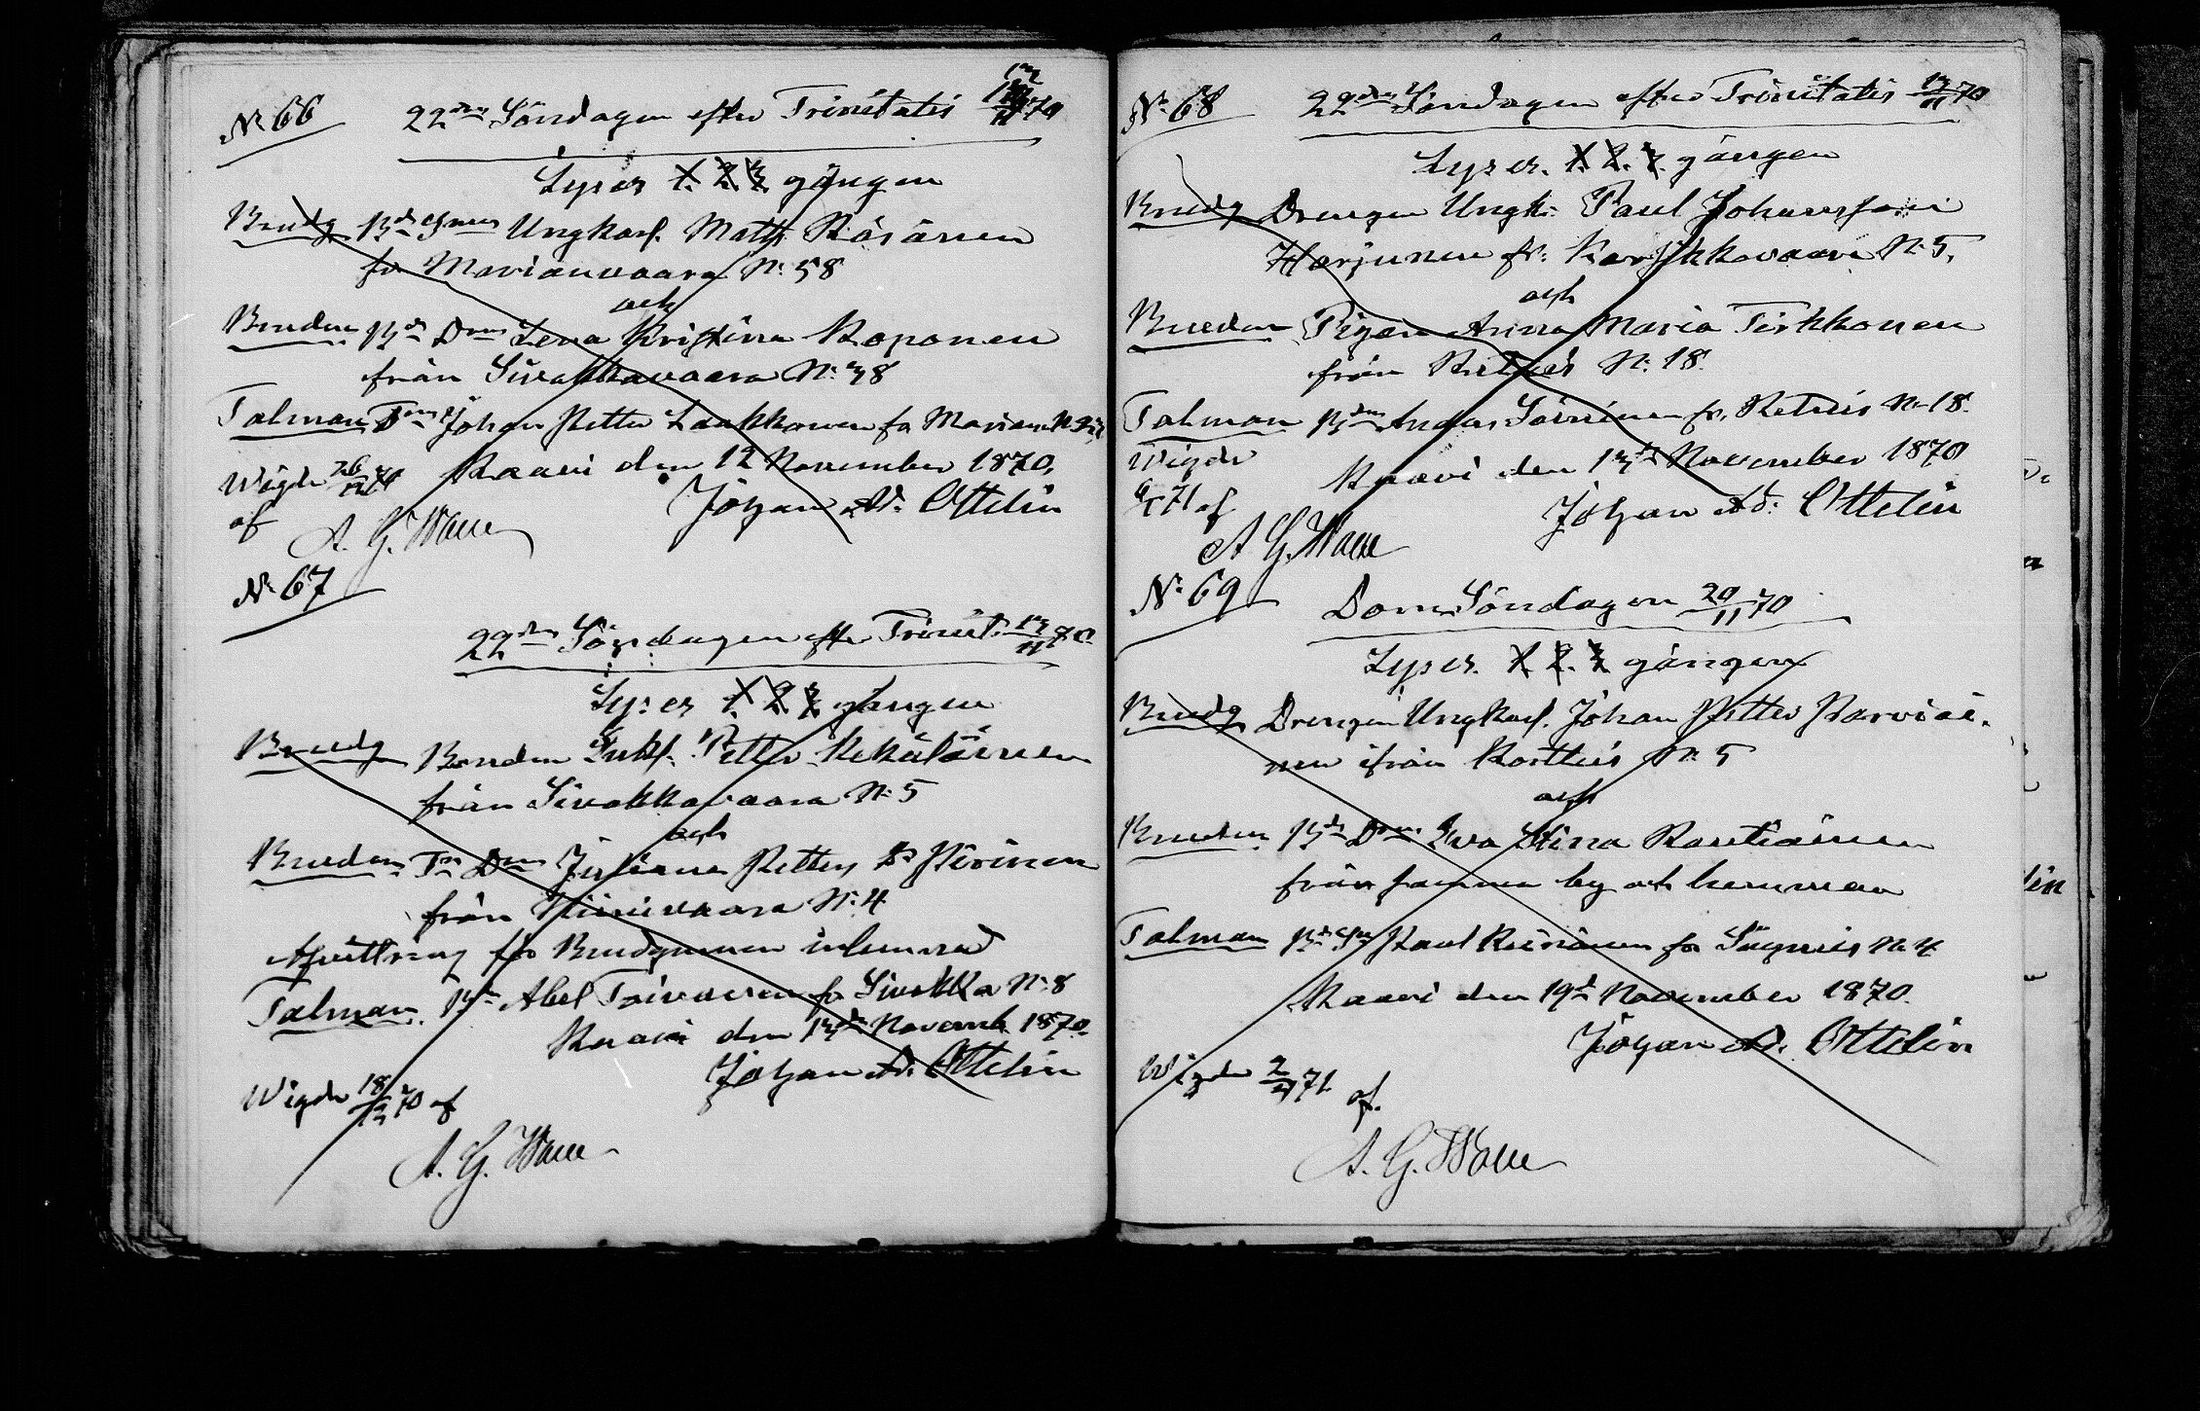 N: 66
22dra Söndagen efter Trinitatis 13/11 70
Lyses 1. 2. 3 gången
Brudg Bde Snen Ungkarl. Matts Räsänen
fr Marianvaara N: 58
och
Bruden Bde Dren Lena Kristina Koponen
från Sivakkavaara N: 38
Talman Johan Petter Laakkonen fr Marian
Wigde 26/12 70 Kaavi den 12 November 1870.
af A. G. Walle Johan Ad. Ottelin
N: 67
22dra Söndagen efter Trinit. 13/11 70.
Lyses 1. 2. 3 gången
Brudg Bonden Enkl. Petter Kekäläinen
från Sivakkavaara N: 5
och
Bruden Tn Dren Juliana Petters Dr Hirvinen
från Niinivaara N: 4
Afvittring för Brudgummen inlemnad
Talman Bn Abel Toivanen fr Sivakka N: 8
Kaavi den 13de Novemb 1870.
Johan Ad. Ottelin
Wigde 18/12 70 af
A. G. Walle
N: 68
22dra Söndagen efter Trinitatis 13/11 70
Lyses. 1. 2. 3. gången
Brudg Drengen Ungk: Paul Johansson
Harjunen fr: Karsikkovaara N: 5.
och
Bruden Pigan Anna Maria Tirkkonen
från Retuis N: 18.
Talman Bden Anders Soininen fr. Retuis N: 18.
Wigde Kaavi den 13de November 1870
71 af Johan Ad. Ottelin
A G. Walle
N: 69
Dom Söndagen 20/11 70
Lyses. 1. 2. 3 gången
Brudg Drengen Ungkarl. Johan Petter Parviai-
nen ifrån Kortteis N: 5
och
Bruden Bde Dren Eva Stina Rautiainen
från samma by och hemman
Talman Bde Sn Paul fr Säyneis N: 4
Kaavi den 19de November 1870.
Johan Ad. Ottelin
Wigde 2/4 71. af.
A. G. Walle